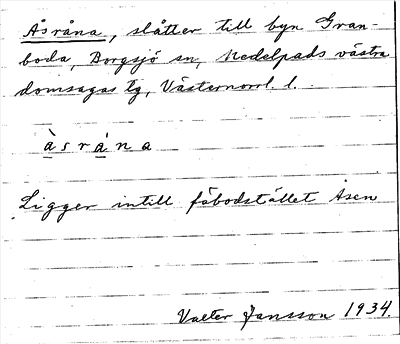 Åsråna, slåtter till byn Gran-
boda, Borgsjö sn, Medelpads västra
domsagas tg, Västernorrl. l.
àsrána
Ligger intill fäbodstället Åsen
Valter Jansson 1934.